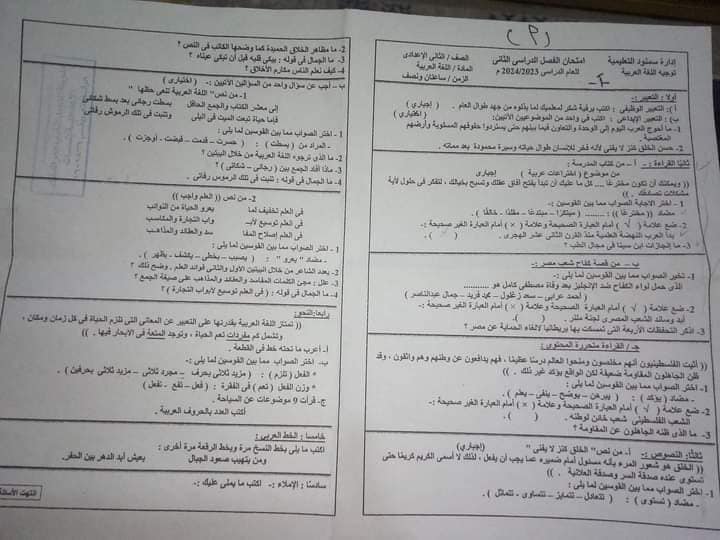 (P)
إدارة سمنود التعليمية
توجيه اللغة العربية
امتحان الفصل الدراسى الثانى
للعام الدراسى 2024/2023م
الصف / الثانى الإعدادى
المادة / اللغة العربية
الزمن / ساعتان ونصف
أولا : التعبير :-
أ) : التعبير الوظيفى : اكتب برقية شكر لمعلميك لما بذلوه من جهد طوال العام . ( إجبارى )
ب) : التعبير الإبداعى : اكتب فى واحد من الموضوعين الآتيين: ( اختيارى )
1- ما أحوج العرب اليوم إلى الوحدة والتعاون فيما بينهم حتى يستردوا حقوقهم المسلوبة وأرضهم
المغتصبة.
2- حسن الخلق كنز لا يفنى لأنه فخر للإنسان طوال حياته وسيرة محمودة بعد مماته .
ثانيًا القراءة :- أ – من كتاب المدرسة :
من موضوع ( اختراعات عربية ) إجبارى
(( ويمكنك أن تكون مخترعًا .... كل ما عليك أن تبدأ بفتح آفاق عقلك وتسبح بخيالك ، لتفكر فى حلول لأية
مشكلات تصادفك ))
1 - اختر الإجابة الصواب مما بين القوسين :-
- مضاد (( مخترعًا )) : ........ ( مبتكرًا – مبتدعًا – مقلدًا - خالقًا ) .
2- ضع علامة ( √ ) أمام العبارة الصحيحة وعلامة ( × ) أمام العبارة الغير صحيحة :-
بدأ العرب النهضة العلمية منذ القرن الثانى عشر الهجرى. ( )
3- ما إنجازات ابن سينا فى مجال الطب ؟
ب – من قصة كفاح شعب مصر :-
1- تخير الصواب مما بين القوسين لما يلى:-
الذى حمل لواء الكفاح ضد الإنجليز بعد وفاة مصطفى كامل هو ......
( أحمد عرابى – سعد زغلول – محمد فريد – جمال عبدالناصر )
2- ضع علامة ( √ ) أمام العبارة الصحيحة وعلامة ( × ) أمام العبارة الغير صحيحة:-
أيد وساند الشعب المصرى لجنة ملنر . ( )
3- اذكر التحفظات الأربعة التى تمسكت بها بريطانيا لإلغاء الحماية عن مصر ؟
جـ / القراءة متحررة المحتوى :
(( أثبت الفلسطينيون أنهم مخلصون ومنحوا العالم درسًا عظيمًا ، فهم يدافعون عن وطنهم وهم واثقون ، وقد
ظن الجاهلون المقاومة ضعيفة لكن الواقع يؤكد غير ذلك . ))
1- اختر الصواب مما بين القوسين لما يلى:
- مضاد ( يؤكد ) : ( يبرهن – يوضح – ينفى – يعلم ) .
2- ضع علامة ( √ ) أمام العبارة الصحيحة وعلامة ( × ) أمام العبارة الغير صحيحة:-
الشعب الفلسطينى شعب خائن لوطنه . ( )
3- ما الذى ظنه الجاهلون عن المقاومة ؟
ثالثًا:- النصوص :- أ- من نص" الخلق كنز لا يفنى " (إجبارى)
(( الخلق هو شعور المرء بأنه مسئول أمام ضميره عما يجب أن يفعل ، لذلك لا أسمى الكريم كريمًا حتى
تستوى عنده صدقة السر وصدقة العلانية . ))
1- اختر الصواب مما بين القوسين لما يلى:
- مضاد ( تستوى ) : ( تتعادل – تتمايز – تتساوى - تتماثل ) .
2- ما مظاهر الخلاق الحميدة كما وضحها الكاتب فى النص ؟
3- ما الجمال فى قوله : يبكى قلبه قبل أن تبكى عيناه ؟
4- كيف نعلم الناس مكارم الأخلاق ؟
ب – أجب عن سؤال واحد من السؤالين الآتيين :- ( اختيارى )
1- من نص" اللغة العربية تنعى حظها "
إلى معشر الكتاب والجمع الحافل بسطت رجائى بعد بسط شكاتى
فإما حياة تبعث الميت فى البلى وتنبت فى تلك الرموس رفاتى
1 - اختر الصواب مما بين القوسين لما يلى:
- المراد من ( بسطت ) : ( خسرت – قدمت – قبضت - أوجزت ) .
2- ما الذى ترجوه اللغة العربية من خلال البيتين ؟
3- ماذا أفاد الجمع بين ( رجائى – شكاتى ) ؟
4- ما الجمال فى قوله : تنبت فى تلك الرموس رفاتى .
2- من نص (( العلم واجب ))
فى العلم تخفيف لما يعرو الحياة من النوائب
فى العلم توسيع لأبـ ـواب التجارة والمكاسب
فى العلم إصلاح المفا سد والعقائد والمذاهب
1 - اختر الصواب مما بين القوسين لما يلى:
- مضاد " يعرو " : ( يصيب – يخفى – يكشف - يظهر ) .
2- يعدد الشاعر من خلال البيتين الأول والثانى فوائد العلم . وضح ذلك ؟
3- علل : مجئ الكلمات المفاسد والعقائد والمذاهب على صيغة الجمع ؟
4- ما الجمال فى قوله : ( فى العلم توسيع لأبواب التجارة ) ؟
رابعا:النحو:
(( تمتاز اللغة العربية بقدرتها على التعبير عن المعانى التى تلزم الحياة فى كل زمان ومكان ،
وتشمل كم مفردات نعم الحياة ، وتوجد المتعة فى الإبحار فيها . ))
أ- أعرب ما تحته خط فى القطعة .
ب- اختر الصواب مما بين القوسين لما يلى :-
* الفعل ( تلزم ) : ( مزيد ثلاثى بحرف – مجرد ثلاثى – مزيد ثلاثى بحرفين ) .
* وزن الفعل ( نعم ) فى الفقرة : ( فعل – تفع - تفعل )
ج- قرأت 9 موضوعات عن السياحة .
أكتب العدد بالحروف العربية .
خامسا : الخط العربى :
اكتب ما يلى بخط النسخ مرة وبخط الرقعة مرة أخرى :
ومن يتهيب صعود الجبال يعيش أبد الدهر بين الحفر.
سادسًا : الإملاء :- اكتب ما يملى عليك :-
انتهت الأسئلة